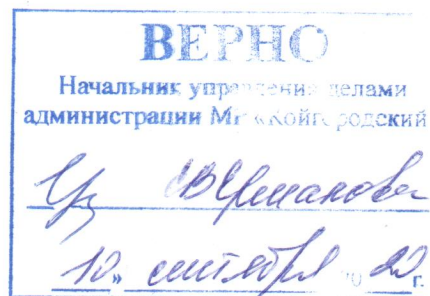 ВЕРНО
Начальник управления делами
администрации МР «Койгородский
10 » сентября 20 20 г.